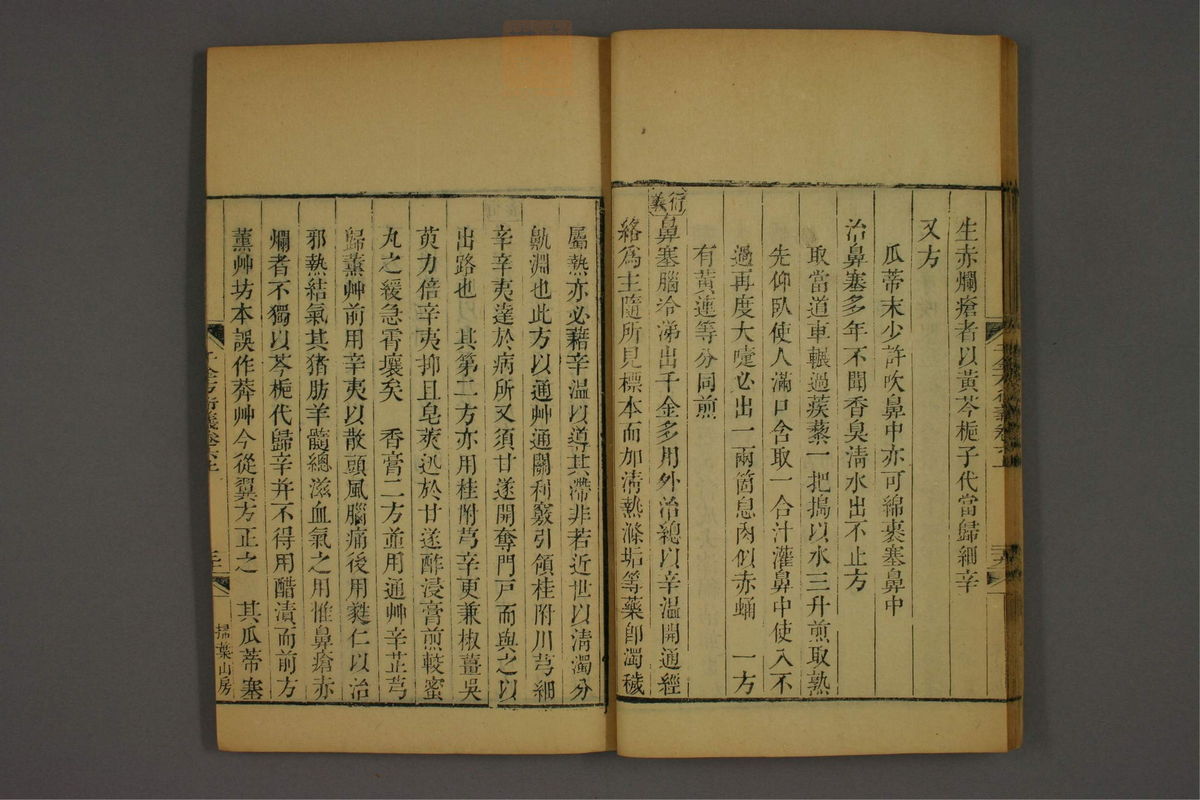 生赤爛瘡者以黃芩梔子代當歸細辛
又方
瓜蒂末少許吹鼻中亦可綿裹塞鼻中
治鼻塞多年不聞香臭清水出不止方
取當道車輾過蒺藜一把搗以水三升煎取熟
先仰臥使人滿口含取一合汁灌鼻中使入不
過再度大嚏必出一兩箇息肉似赤蛹　一方
有黃連等分同煎
衍義
鼻塞腦冷涕出千金多用外治總以辛溫開通經
絡爲主隨所見標本而加清熱滌垢等藥卽濁穢
屬熱亦必藉辛溫以導其滯非若近世以清濁分
鼽淵也此方以通艸通關利竅引領桂附川芎細
辛辛夷達於病所又須甘遂開奪門戸而與之以
出路也　其第二方亦用桂附芎辛更兼椒薑吳
萸力倍辛夷抑且皂莢迅於甘遂酢浸膏煎較蜜
丸之緩急霄壤矣　香膏二方並用通艸辛芷芎
歸薰艸前用辛夷以散頭風腦痛後用蕤仁以治
邪熱結氣其猪肪羊髓總滋血氣之用惟鼻瘡赤
爛者不獨以芩梔代歸辛幷不得用醋漬而前方
薰艸坊本誤作莽艸今從翼方正之　其瓜蒂塞
千金方衍義卷六上
掃葉山房